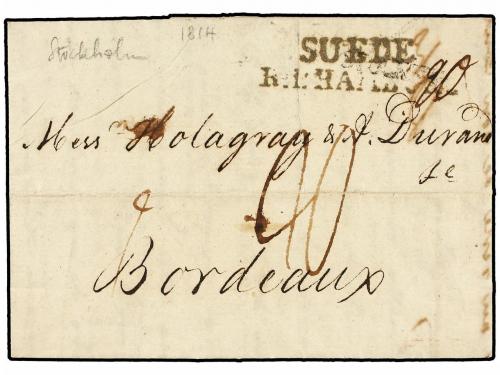 Stockholm 1814
SUEDE
R.P. HAMBOURG
90
Mess Holagray & J. Durand
40
Bordeaux